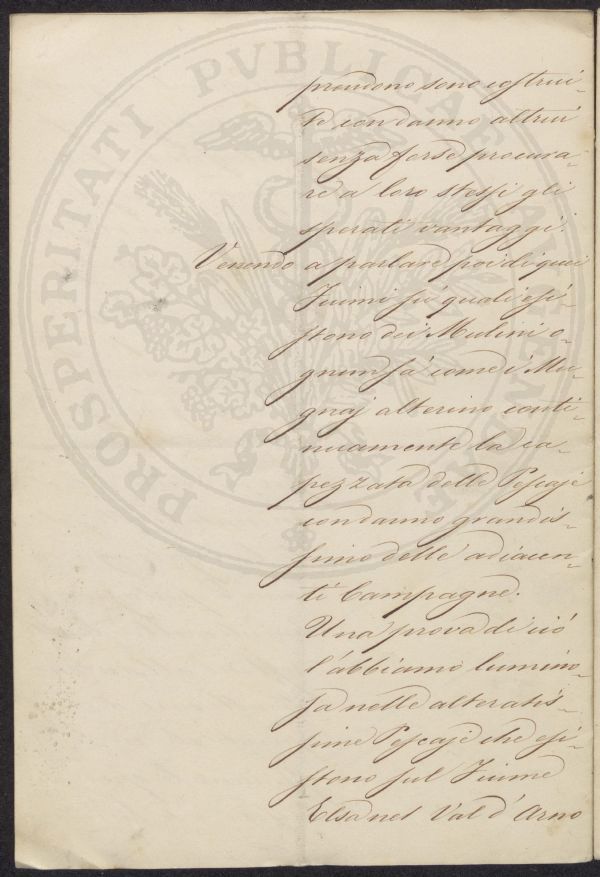 prendono sono costrui-
te con danno altrui
senza forse procura-
re a loro stessi gli
sperati vantaggi.
Venendo a parlare poi di quei
Fiumi sù quali esi-
stono dei Mulini o-
gnun sà come i Mu-
gnaj alterino conti-
nuamente la ca-
pezzata delle Pescaje
con danno grandis-
simo delle adiacen-
ti Campagne.
Una prova di ciò
l'abbiamo lumino-
sa nelle alteratis-
sime Pescaje che esi-
stono sul Fiume
Elsa nel Val d'Arno
PROSPERITATI PVBLICAE AVGENDAE